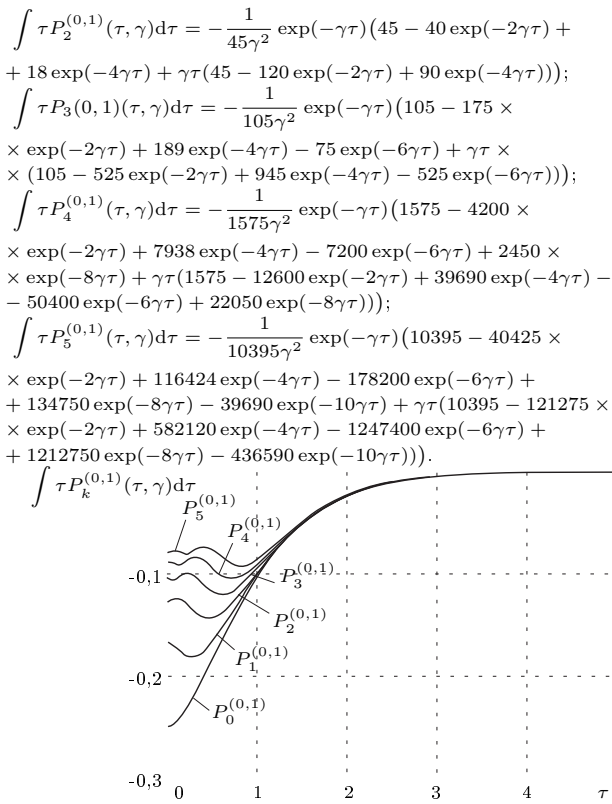 ∫ τP₂^(0,1)(τ, γ)dτ = −1/(45γ²) exp(−γτ)(45 − 40 exp(−2γτ) +
+ 18 exp(−4γτ) + γτ(45 − 120 exp(−2γτ) + 90 exp(−4γτ)));
∫ τP₃(0, 1)(τ, γ)dτ = −1/(105γ²) exp(−γτ)(105 − 175 ×
× exp(−2γτ) + 189 exp(−4γτ) − 75 exp(−6γτ) + γτ ×
× (105 − 525 exp(−2γτ) + 945 exp(−4γτ) − 525 exp(−6γτ)));
∫ τP₄^(0,1)(τ, γ)dτ = −1/(1575γ²) exp(−γτ)(1575 − 4200 ×
× exp(−2γτ) + 7938 exp(−4γτ) − 7200 exp(−6γτ) + 2450 ×
× exp(−8γτ) + γτ(1575 − 12600 exp(−2γτ) + 39690 exp(−4γτ) −
− 50400 exp(−6γτ) + 22050 exp(−8γτ)));
∫ τP₅^(0,1)(τ, γ)dτ = −1/(10395γ²) exp(−γτ)(10395 − 40425 ×
× exp(−2γτ) + 116424 exp(−4γτ) − 178200 exp(−6γτ) +
+ 134750 exp(−8γτ) − 39690 exp(−10γτ) + γτ(10395 − 121275 ×
× exp(−2γτ) + 582120 exp(−4γτ) − 1247400 exp(−6γτ) +
+ 1212750 exp(−8γτ) − 436590 exp(−10γτ))).
∫ τPₖ^(0,1)(τ, γ)dτ
P₅^(0,1)
P₄^(0,1)
-0,1
P₃^(0,1)
P₂^(0,1)
P₁^(0,1)
-0,2
P₀^(0,1)
-0,3
0 1 2 3 4 τ